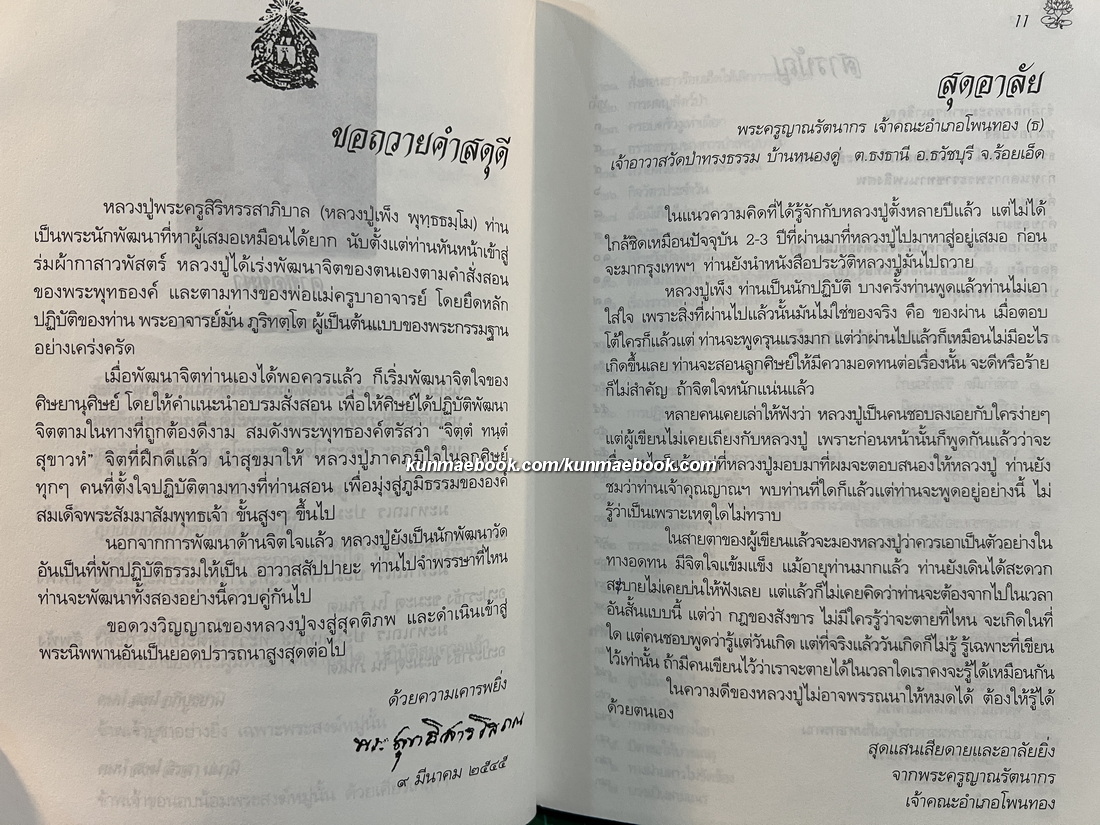 ขอถวายคำสดุดี
หลวงปู่พระครูสิริหรรสาภิบาล (หลวงปู่เพ็ง พุทฺธธมฺโม) ท่าน
เป็นพระนักพัฒนาที่หาผู้เสมอเหมือนได้ยาก นับตั้งแต่ท่านหันหน้าเข้าสู่
ร่มผ้ากาสาวพัสตร์ หลวงปู่ได้เร่งพัฒนาจิตของตนเองตามคำสั่งสอน
ของพระพุทธองค์ และตามทางของพ่อแม่ครูบาอาจารย์ โดยยึดหลัก
ปฏิบัติของท่าน พระอาจารย์มั่น ภูริทตฺโต ผู้เป็นต้นแบบของพระกรรมฐาน
อย่างเคร่งครัด
เมื่อพัฒนาจิตท่านเองได้พอควรแล้ว ก็เริ่มพัฒนาจิตใจของ
ศิษยานุศิษย์ โดยให้คำแนะนำอบรมสั่งสอน เพื่อให้ศิษย์ได้ปฏิบัติพัฒนา
จิตตามในทางที่ถูกต้องดีงาม สมดังพระพุทธองค์ตรัสว่า "จิตฺตํ ทนฺตํ
สุขาวหํ" จิตที่ฝึกดีแล้ว นำสุขมาให้ หลวงปู่ภาคภูมิใจในลูกศิษย์
ทุกๆ คนที่ตั้งใจปฏิบัติตามทางที่ท่านสอน เพื่อมุ่งสู่ภูมิธรรมขององค์
สมเด็จพระสัมมาสัมพุทธเจ้า ขั้นสูงๆ ขึ้นไป
นอกจากการพัฒนาด้านจิตใจแล้ว หลวงปู่ยังเป็นนักพัฒนาวัด
อันเป็นที่พักปฏิบัติธรรมให้เป็น อาวาสสัปปายะ ท่านไปจำพรรษาที่ไหน
ท่านจะพัฒนาทั้งสองอย่างนี้ควบคู่กันไป
ขอดวงวิญญาณของหลวงปู่จงสู่สุคติภพ และดำเนินเข้าสู่
พระนิพพานอันเป็นยอดปรารถนาสูงสุดต่อไป
ด้วยความเคารพยิ่ง
พระสุทธิสารโสภณ
๙ มีนาคม ๒๕๔๕
11
สุดอาลัย
พระครูญาณรัตนากร เจ้าคณะอำเภอโพนทอง (ธ)
เจ้าอาวาสวัดป่าทรงธรรม บ้านหนองดู่ ต.ธงธานี อ.ธวัชบุรี จ.ร้อยเอ็ด
ในแนวความคิดที่ได้รู้จักกับหลวงปู่ตั้งหลายปีแล้ว แต่ไม่ได้
ใกล้ชิดเหมือนปัจจุบัน 2-3 ปีที่ผ่านมาที่หลวงปู่ไปมาหาสู่อยู่เสมอ ก่อน
จะมากรุงเทพฯ ท่านยังนำหนังสือประวัติหลวงปู่มั่นไปถวาย
หลวงปู่เพ็ง ท่านเป็นนักปฏิบัติ บางครั้งท่านพูดแล้วท่านไม่เอา
ใส่ใจ เพราะสิ่งที่ผ่านไปแล้วนั้นมันไม่ใช่ของจริง คือ ของผ่าน เมื่อตอบ
โต้ใครก็แล้วแต่ ท่านจะพูดรุนแรงมาก แต่ว่าผ่านไปแล้วก็เหมือนไม่มีอะไร
เกิดขึ้นเลย ท่านจะสอนลูกศิษย์ให้มีความอดทนต่อเรื่องนั้น จะดีหรือร้าย
ก็ไม่สำคัญ ถ้าจิตใจหนักแน่นแล้ว
หลายคนเคยเล่าให้ฟังว่า หลวงปู่เป็นคนชอบลงเอยกับใครง่ายๆ
แต่ผู้เขียนไม่เคยเถียงกับหลวงปู่ เพราะก่อนหน้านั้นก็พูดกันแล้วว่าจะ
ที่หลวงปู่มอบมาที่ผมจะตอบสนองให้หลวงปู่ ท่านยัง
kunmaebook.com/kunmaebook.com
ชมว่าท่านเจ้าคุณญาณฯ พบท่านที่ใดก็แล้วแต่ท่านจะพูดอยู่อย่างนี้ ไม่
รู้ว่าเป็นเพราะเหตุใดไม่ทราบ
ในสายตาของผู้เขียนแล้วจะมองหลวงปู่ว่าควรเอาเป็นตัวอย่างใน
ทางอดทน มีจิตใจแข้มแข็ง แม้อายุท่านมากแล้ว ท่านยังเดินได้สะดวก
สบายไม่เคยบ่นให้ฟังเลย แต่แล้วก็ไม่เคยคิดว่าท่านจะต้องจากไปในเวลา
อันสั้นแบบนี้ แต่ว่า กฎของสังขาร ไม่มีใครรู้ว่าจะตายที่ไหน จะเกิดในที่
ใด แต่คนชอบพูดว่ารู้แต่วันเกิด แต่ที่จริงแล้ววันเกิดก็ไม่รู้ รู้เฉพาะที่เขียน
ไว้เท่านั้น ถ้ามีคนเขียนไว้ว่าเราจะตายได้ในเวลาใดเราคงจะรู้ได้เหมือนกัน
ในความดีของหลวงปู่ไม่อาจพรรณนาให้หมดได้ ต้องให้รู้ได้
ด้วยตนเอง
สุดแสนเสียดายและอาลัยยิ่ง
จากพระครูญาณรัตนากร
เจ้าคณะอำเภอโพนทอง